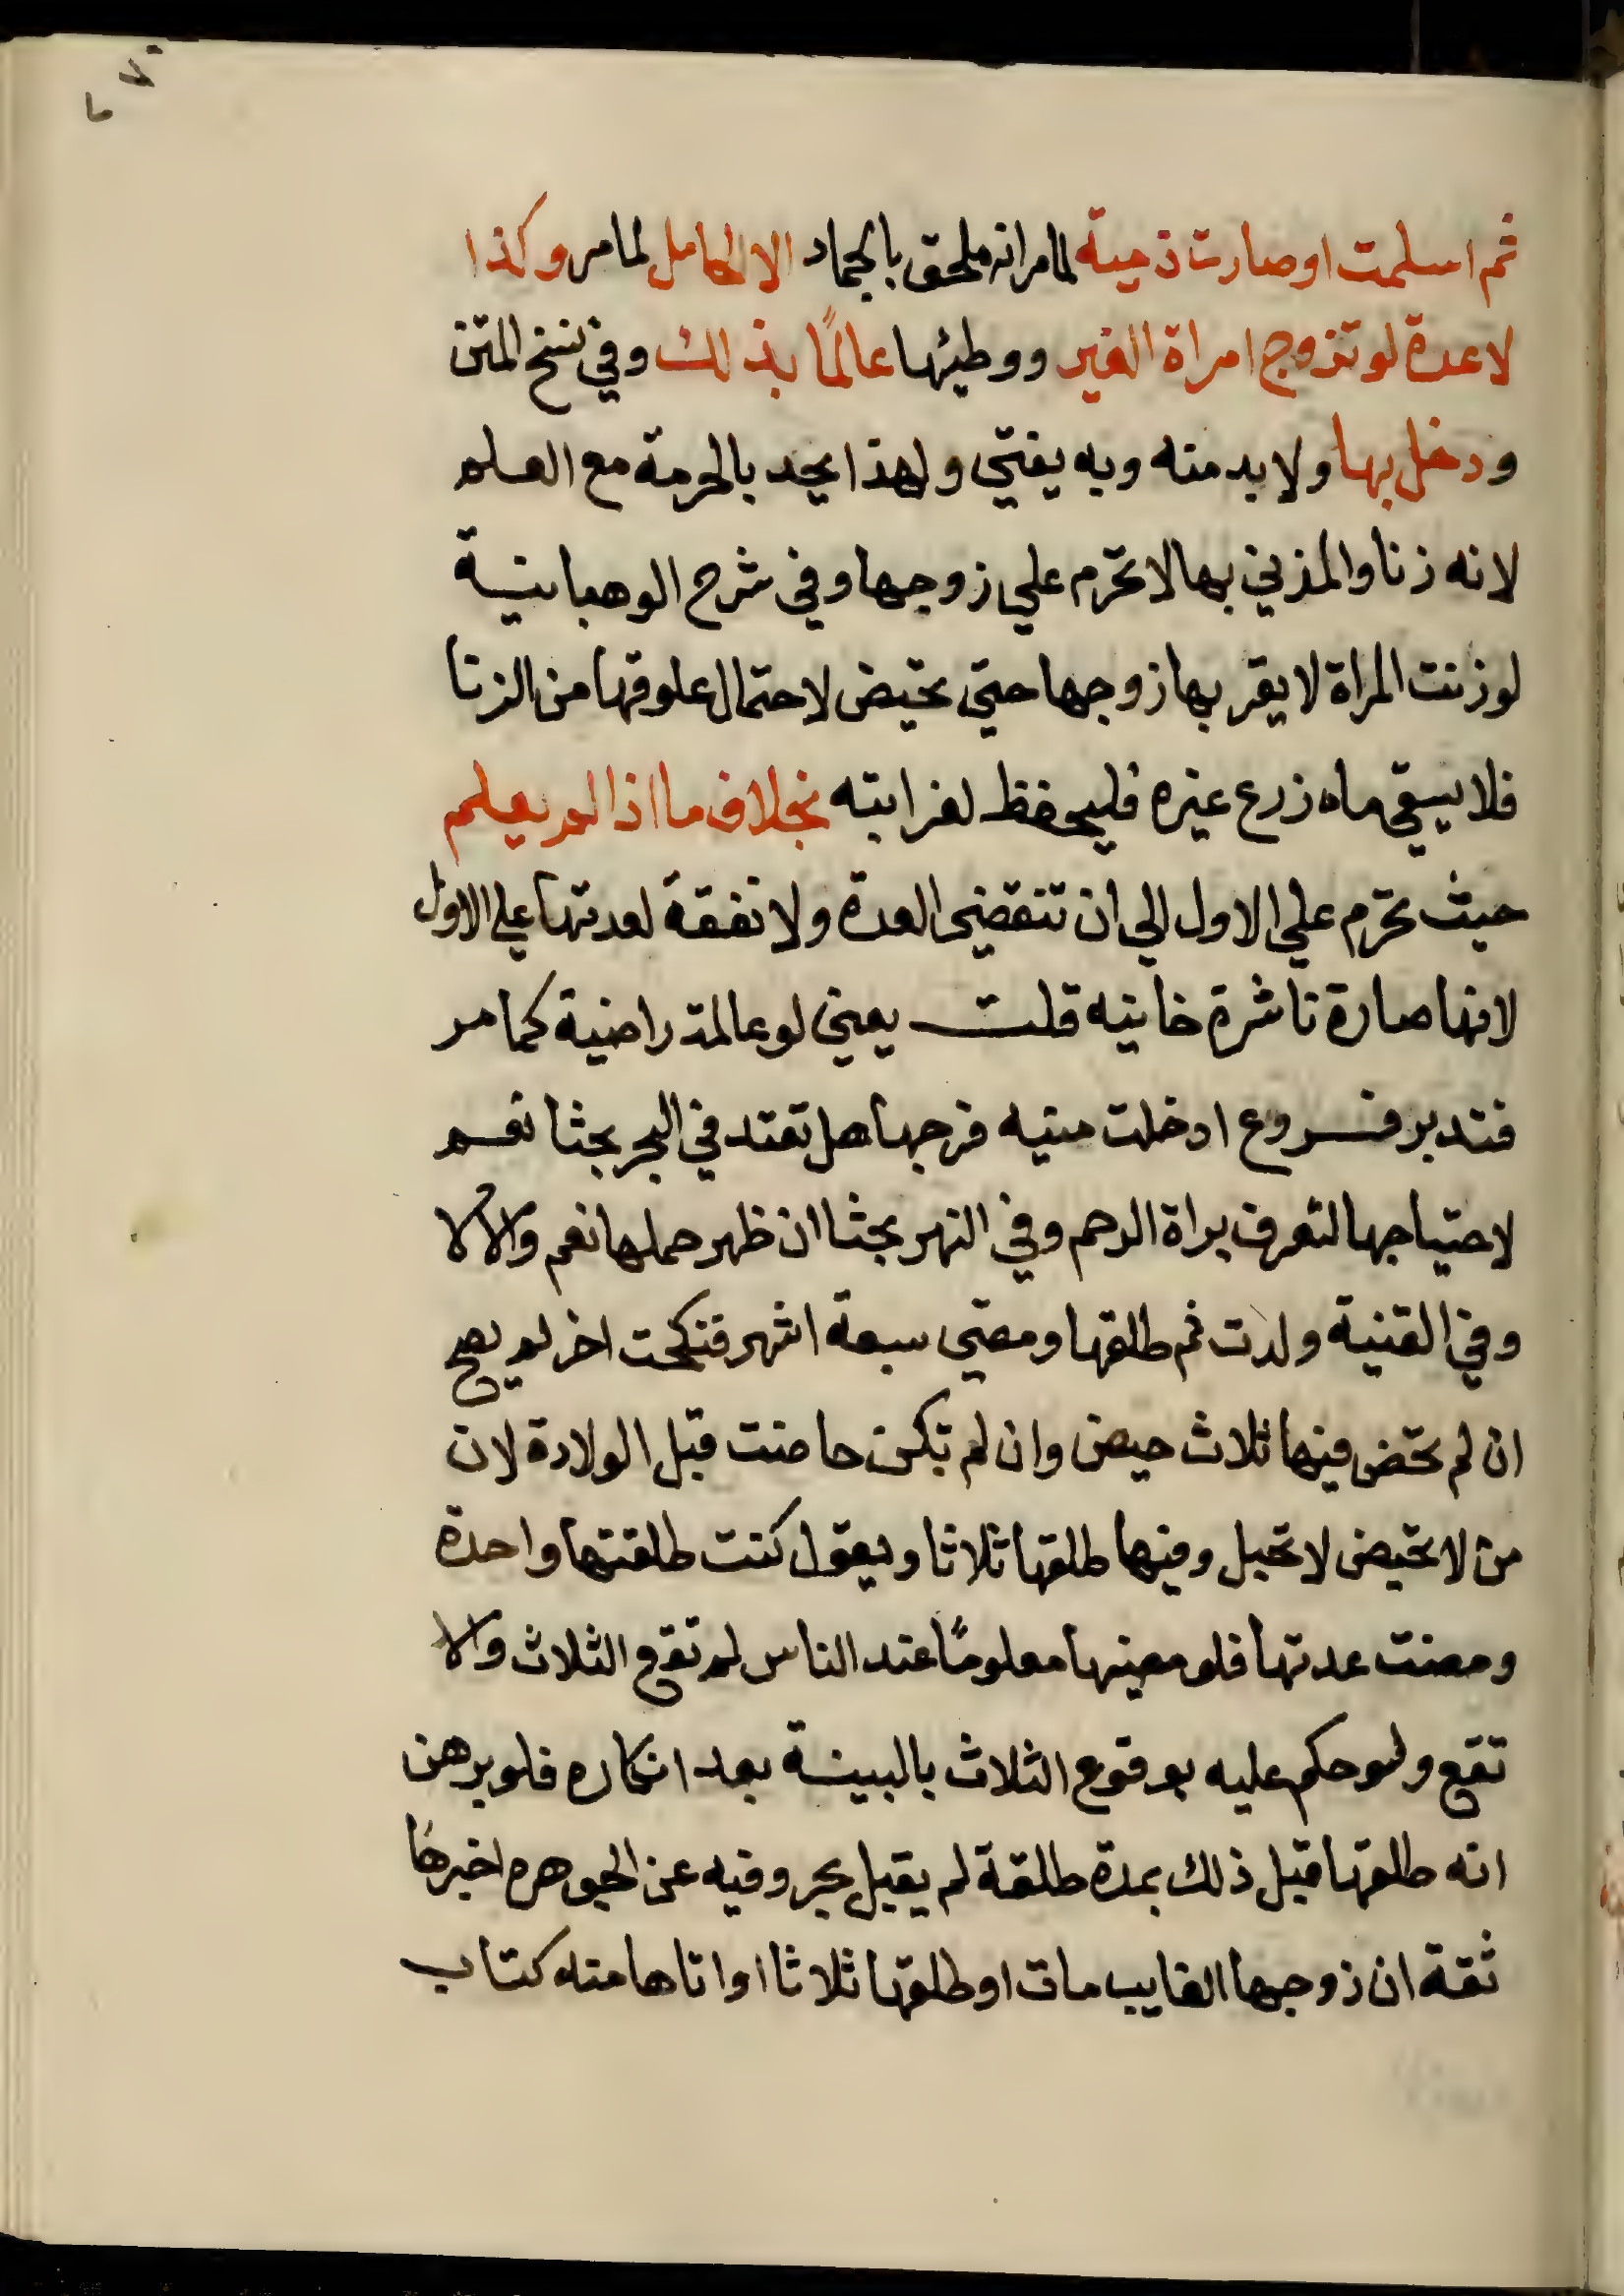 ثم اسلمت او صارت ذمية لما مر انه ملحق بالجماد الا الحامل لما مر وكذا
لا عدة لو تزوج امراة الغير ووطيها عالمًا بذلك وفي نسخ المتن
ودخل بها ولا بد منه وبه يفتي ولهذا يحد بالحرمة مع العلم
لانه زنا والمزني بها لا تحرم علي زوجها وفي شرح الوهبانية
لو زنت المراة لا يقربها زوجها حتي تحيض لاحتمال علوقها من الزنا
فلا يسقي ماه زرع غيره فليحفظ لغرابته بخلاف ما اذا لم يعلم
حيث تحرم علي الاول الي ان تنقضي العدة ولا نفقة لعدتها علي الاول
لانها صارة ناشزة خانيه قلت يعني لو عالمة راضية كما مر
فتدبر فروع ادخلت منيه فرجها هل تعتد في البحر بحثا نعم
لاحتياجها لتعرف براة الرحم وفي النهر بحثا ان ظهر حملها نعم والا لا
وفي القنية ولدت ثم طلقها ومضي سبعة اشهر فنكحت اخر لم يصح
ان لم تحض فيها ثلاث حيض وان لم تكن حاضت قبل الولادة لان
من لا تحيض لا تحبل وفيها طلقها ثلاثا ويقول كنت طلقتها واحدة
ومضت عدتها فلو مضيها معلومًا عند الناس لم تقع الثلاث والا
تقع ولو حكم عليه بوقوع الثلاث بالبينة بعد انكاره فلو برهن
انه طلقها قبل ذلك بمدة طلقة لم يقبل بحر وفيه عن الجوهره اخبرها
ثقة ان زوجها الغايب مات او طلقها ثلاثا او اتاها منه كتاب